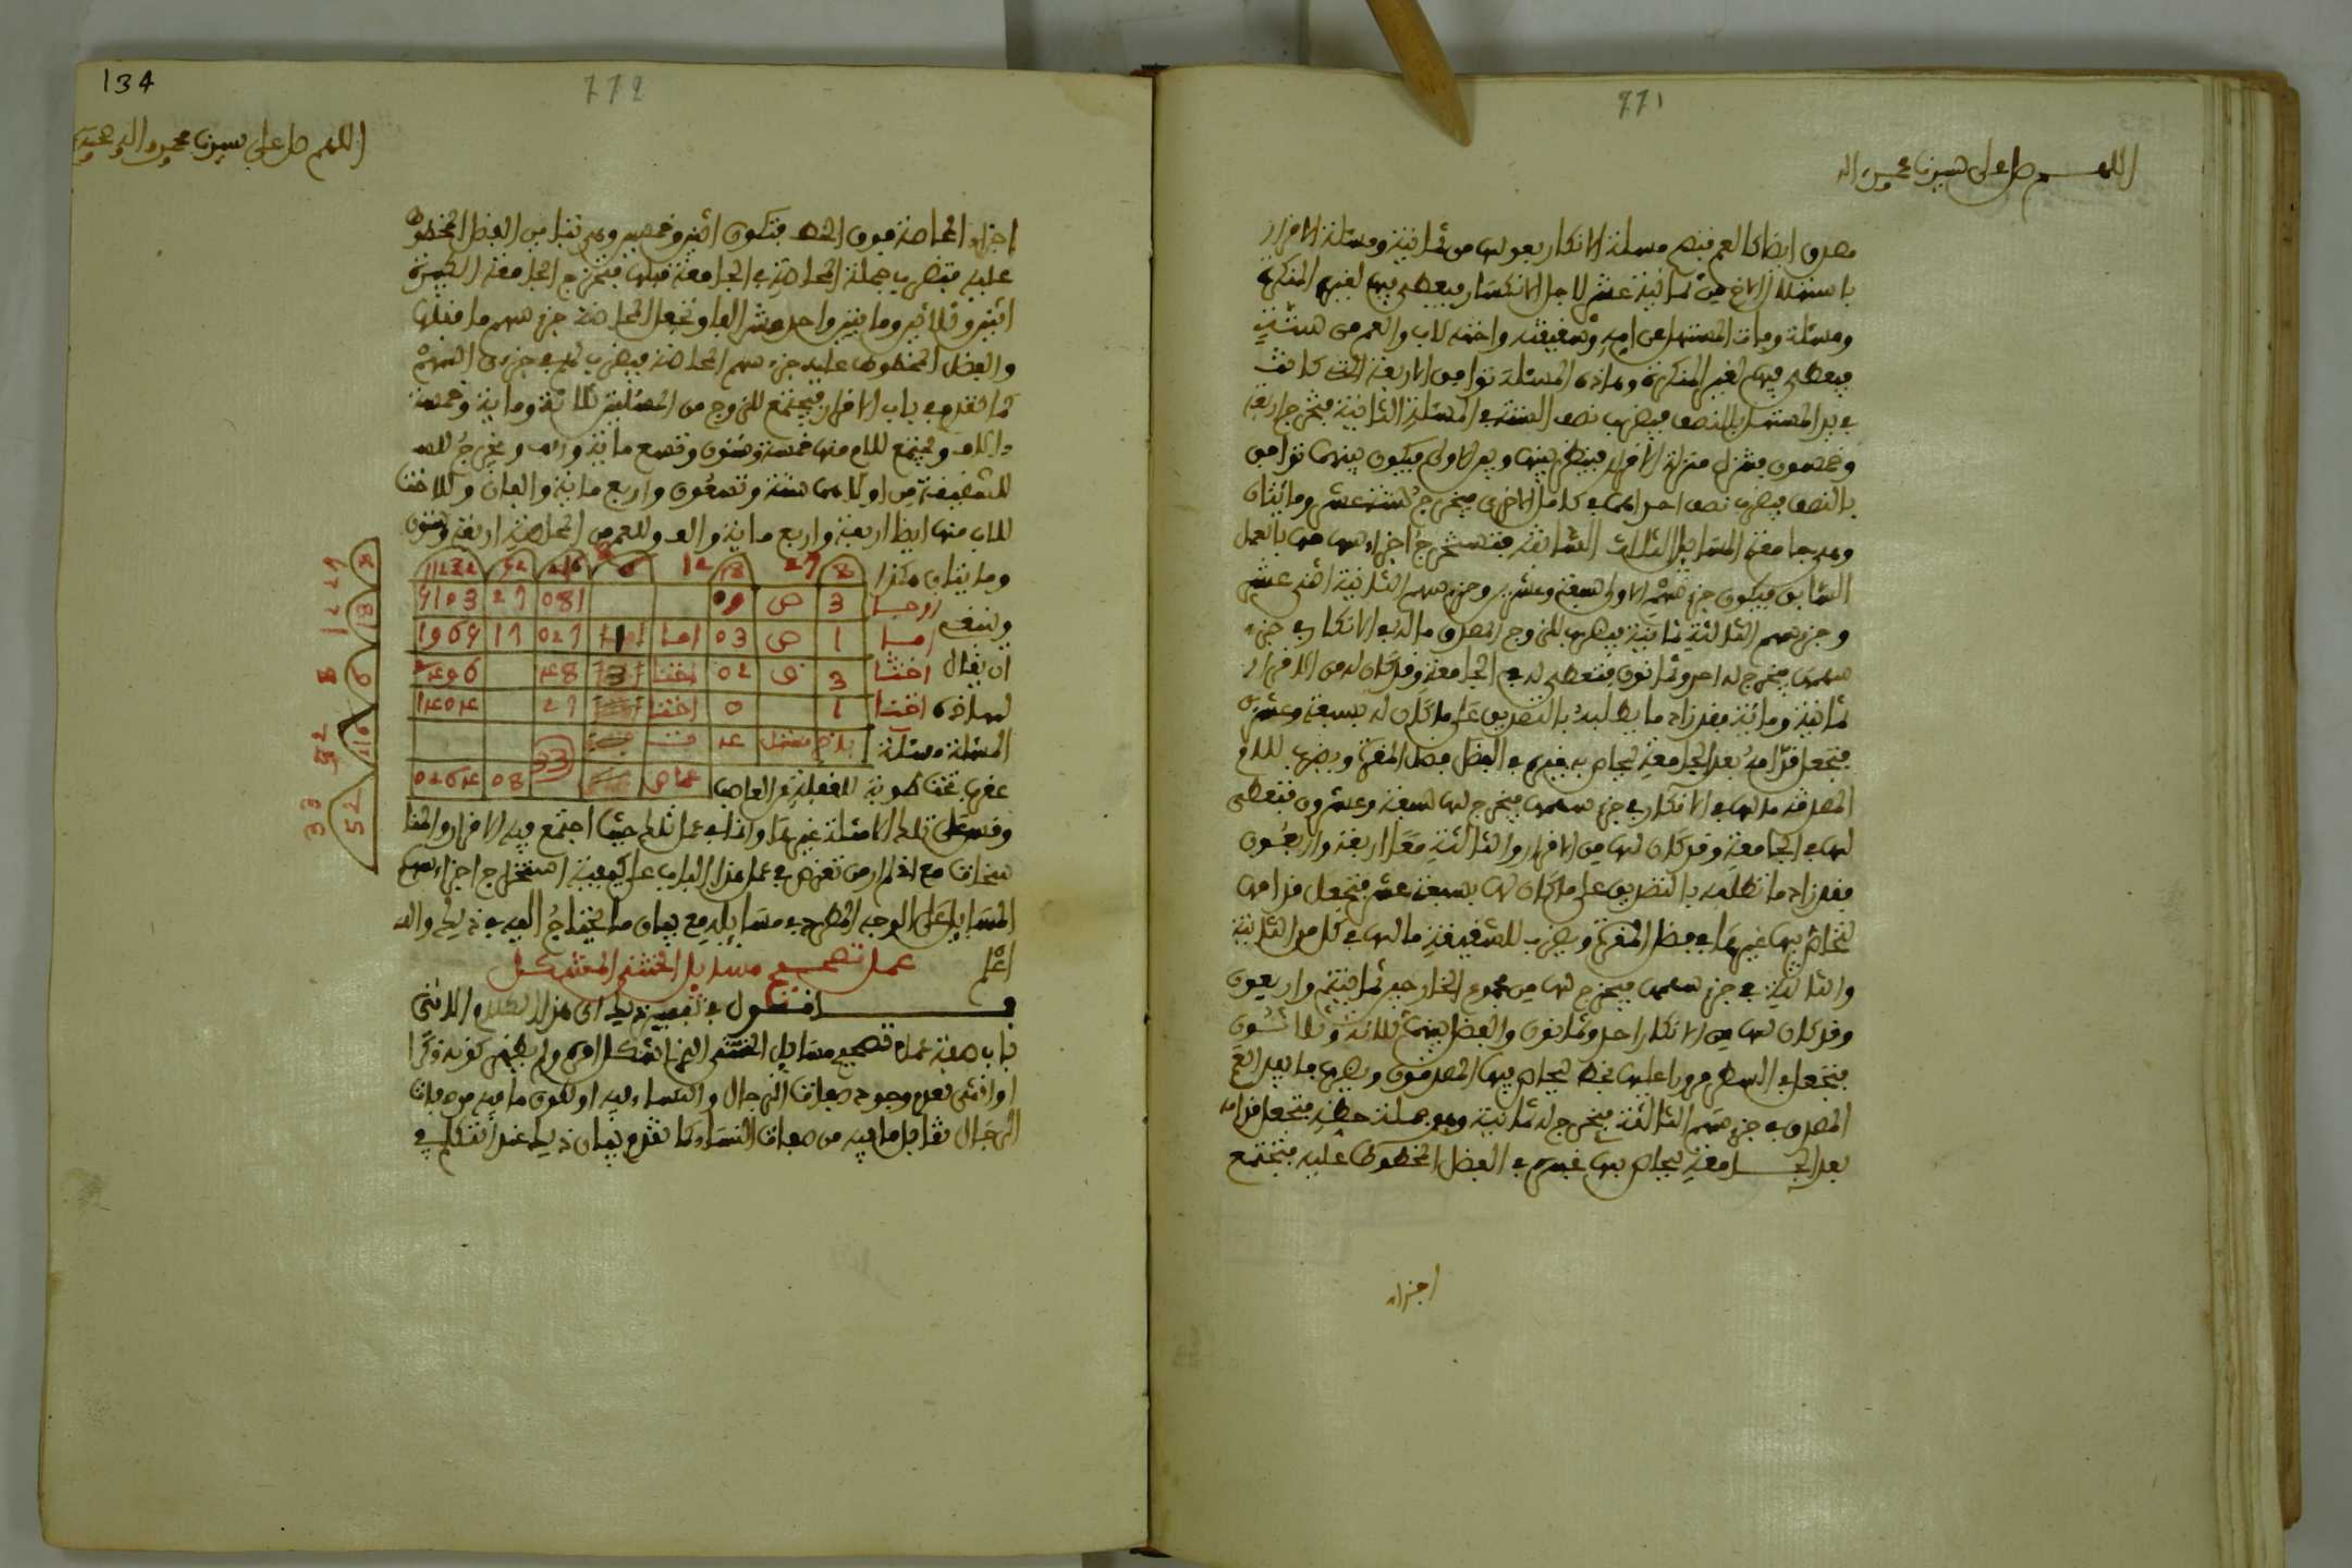 771
اللهم صل على سيدنا محمد واله
مصدق ايضا كالعم فتصح مسئلة الانكار بعولها من ثمانية ومسئلة الاقرار
باستهلال الاخ من ثمانية عشر لاجل الانكسار فيعطى فيها لغير المنكرة
ومسئلة ومات المستهل عن امه وشقيقته واخته للاب والعم من ستة
فيعطى فيها لغير المنكرة وهاذه المسئلة توافق الاربعة التي كانت
بيد المستهل بالنصف فيضرب نصف الستة في المسئلة الثانية فتخرج اربعة
وخمسون فتنزل منزلة الاقرار فينظر بينها وبين الاولى فيكون بينهما توافق
بالنصف فيضرب نصف احداهما في كامل الاخرى فيخرج ستة عشر ومائتان
وهي جامعة المسايل الثلاث السابقة فتستخرج اجزاء سهامها بالعمل
السابق فيكون جزء سهم الاولى سبعة وعشرين وجزء سهم الثانية اثني عشر
وجزء سهم الثالثة ثمانية فيضرب للزوج المصدق ماله في الانكار في جزء
سهمها فيخرج له احد وثمانون فتعطى له في الجامعة وقد كان له من الاقرار
ثمانية ومائة فقد زاد ما يطلبه بالتصديق على ما كان له بسبعة وعشرين
فتجعل قدامه بعد الجامعة يحاص به غيره في الفضل فصل المقرة ويضرب للام
المصدقة مالها في الانكار في جزء سهمها فيخرج لها سبعة وعشرون فتعطى
لها في الجامعة وقد كان لها من الاقرار والثالثة معا اربعة واربعون
فقد زاد ما تطلبه بالتصديق على ما كان لها بسبعة عشر فتجعل قدامها
تحاص بها غيرها في فضل المقرة ويضرب للشقيقة مالها في كل من الثانية
والثالثة في جزء سهمها فيخرج لها من مجموع الخارجين ثمانية واربعون
وقد كان لها من الانكار احد وثمانون والفضل بينهما ثلاثة وثلاثون
فتجعل في السطر مدورا عليها بخط يحاص فيها المصدقون ويضرب ما بيد العم
المصدق في جزء سهم الثالثة فيخرج له ثمانية وهو جملة حظه فتجعل قدامه
بعد الجامعة يحاص بها غيره في الفضل المخطوط عليه فتجتمع
اجزاء
134
772
اللهم صل على سيدنا محمد واله وصحبه
اجزاء المحاصة فوق الخط فتكون اثنين وخمسين وهي تباين الفضل المخطوط
عليه فتضرب جملة المحاصة في الجامعة قبلها فيخرج الجامعة الكبيرة
اثنين وثلاثين ومايتين واحد عشر الفا وتجعل المحاصة جزء سهم ما قبلها
والفضل المخطوط عليه جزء سهم المحاصة فيضرب لهم في جزءى السهم
كما تقدم في باب الاقرار فيجتمع للزوج من المسئلتين ثلاثة ومائة وخمسة
ءالاف ويجتمع للام منها خمسة وستون وتسع ماية والف ويخرج
للشقيقة من اولاهما ستة وتسعون واربع ماية والفان وللاخت
للاب منها ايضا اربعة واربع ماية والف وللعم من المحاصة اربعة وستون
ومايتان هكذا
وينبغي
ان يقال
لهاذه
المسئلة مسئلة
عقرب تحت طوبة لغفلة عن العاصب
8 27 18 12 6 216 52 11232
زوجا 3 ص 09 081 27 5103
اما 1 ص 03 اما 1 027 17 1965
اختا 3 ص 02 اختا 3 48 2496
اختا 1 0 اختا 27 1404
بلاخ مستهل 4 ت
33
عا ص 08 0264
8 27
18 12
6 8
216 52
52 33
وقس على تلك الامثلة غيرها واذا في عمل تلك حيث اجتمع فيه الاقرار والمنا
سخات مع انه لم ار من تعرض في عمل هذا الباب على كيفية استخراج اجزاء سهم
المسايل على الوجه المطرد في مسايله مع بيان ما يحتاج اليه في ذلك والله
اعلم عمل تصحيح مسايل الخنثى المشكل
افول في تفسير ذلك اى هذا
باب صفة عمل تصحيح مسايل الخنثى المشكل وهو من لم يظهر كونه ذكرا
او انثى لعدم وجود صفات الرجال والنساء فيه او لكون ما فيه من صفات
الرجال تقابل ما فيه من صفات النساء كما تقدم بيان ذلك عند التكلم في